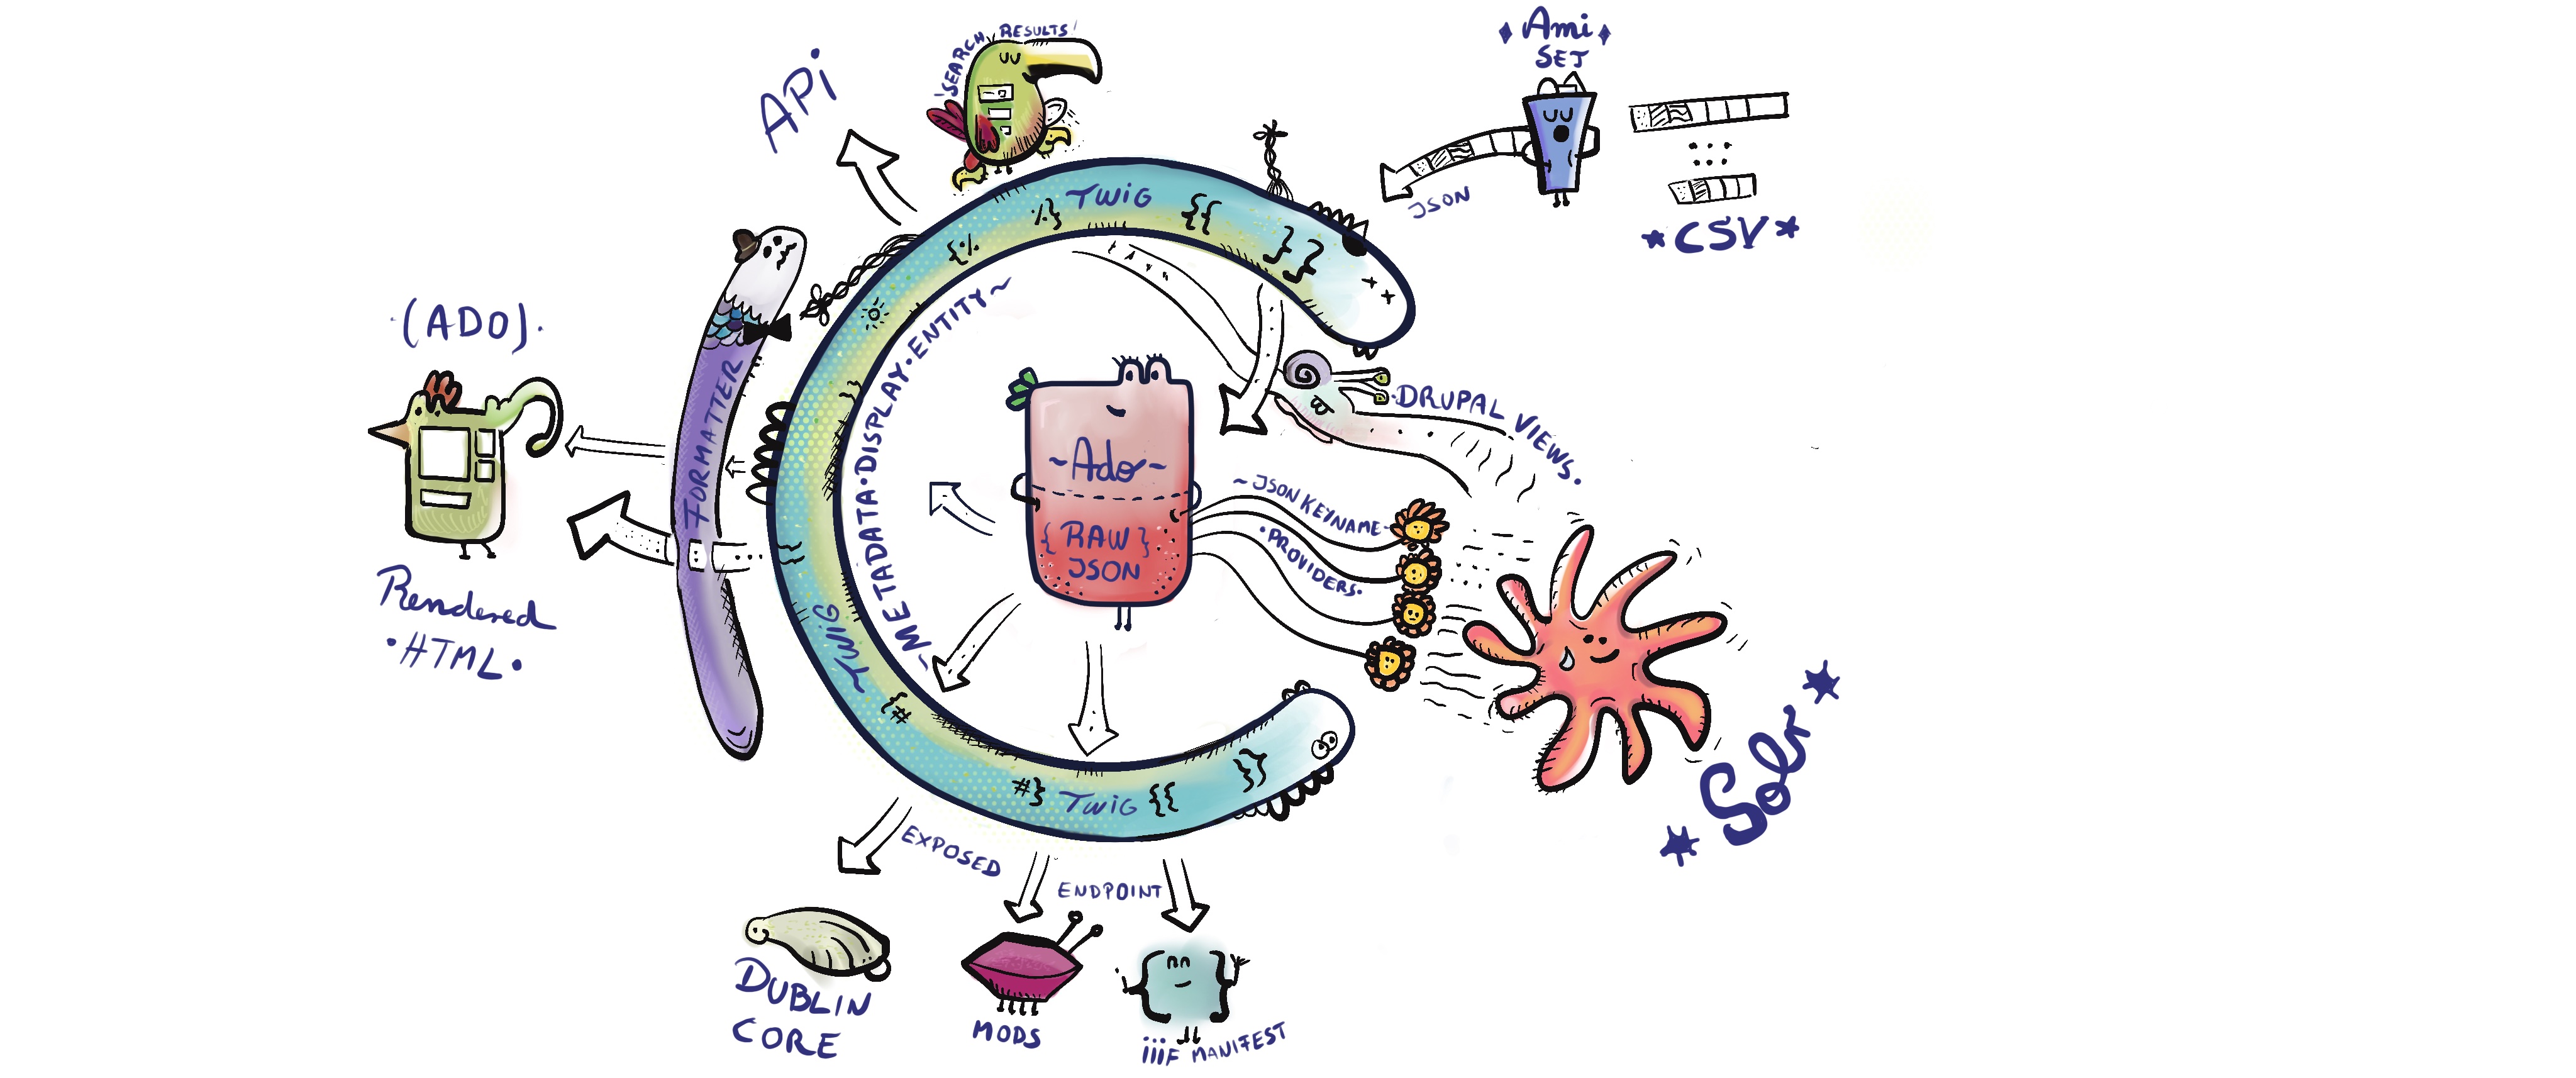 API
'SEARCH RESULTS'
Ami
SET
JSON
*CSV*
TWIG
{%
%}
{{
}}
~METADATA·DISPLAY·ENTITY~
·(ADO)·
FORMATTER
Rendered
·HTML·
~Ado~
{RAW}
JSON
·DRUPAL VIEWS·
~JSON KEYNAME~
·PROVIDERS·
*Solr*
~TWIG
{#
#}
TWIG
{{
}}
EXPOSED
ENDPOINT
DUBLIN
CORE
MODS
iiiF MANIFEST